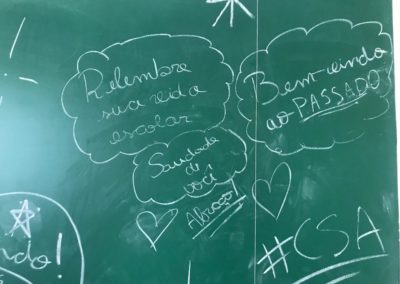 Relembre
sua vida
escolar
Bem-vindo
ao PASSADO
Saudade
de
você
Abraços!
#CSA
ndo!